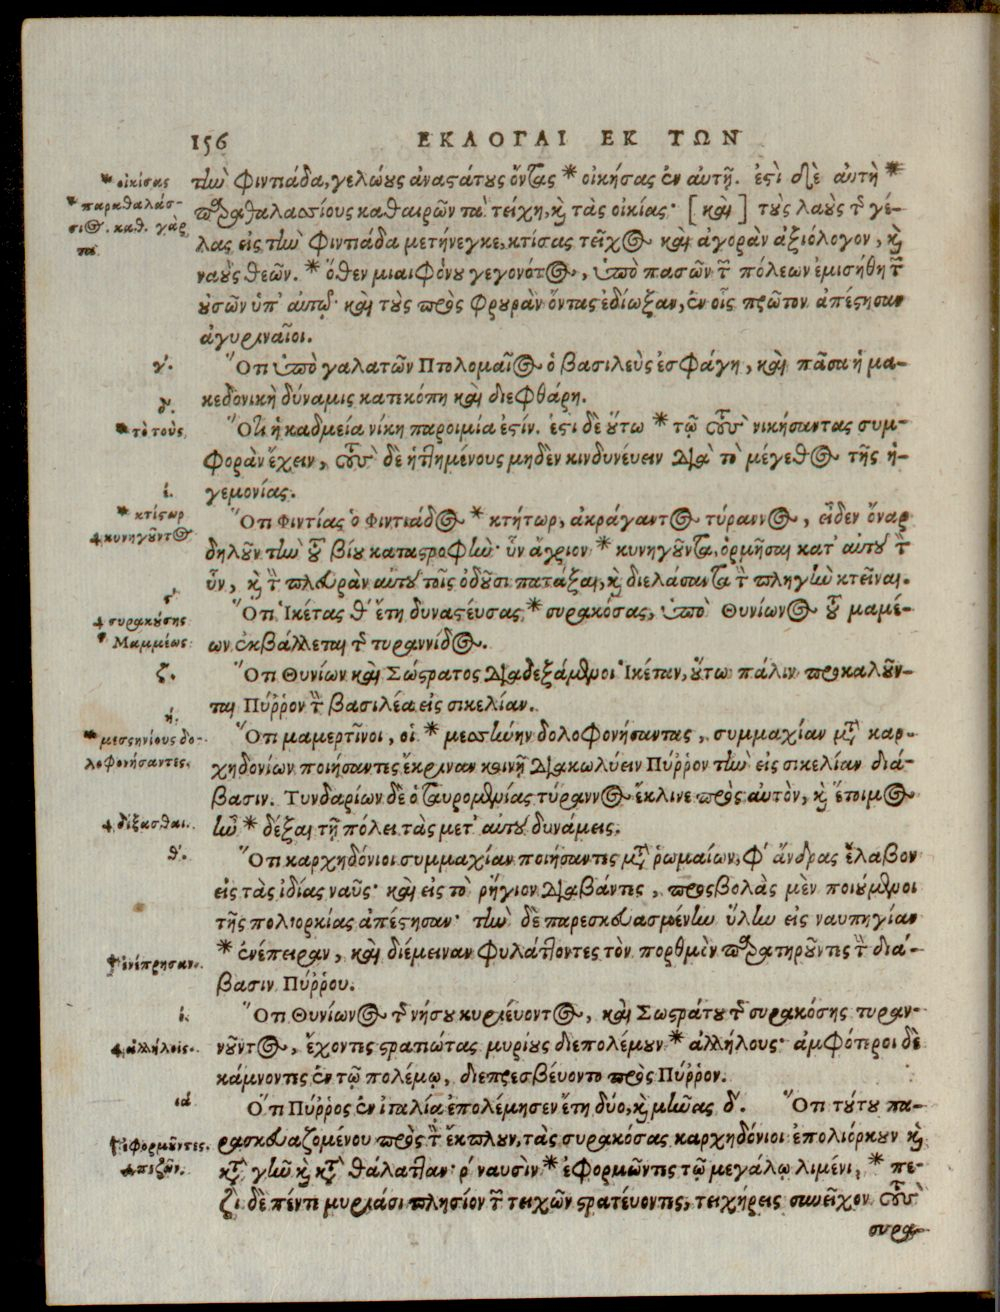 156 ΕΚΛΟΓΑΙ ΕΚ ΤΩΝ
* οἰκίσας
* παραθαλάσ-
σιος. καθ. γὰρ
τὰ.
τὴν Φιντιάδα, γελώους ἀναστάτους ὄντας * οἰκήσας ἐν αὐτῇ. ἐστὶ δὲ αὐτὴ *
παραθαλασσίους καθαιρῶν τὰ τείχη, καὶ τὰς οἰκίας· [καὶ] τοὺς λαοὺς τῆς γέ-
λας εἰς τὴν Φιντιάδα μετήνεγκε, κτίσας τεῖχος καὶ ἀγορὰν ἀξιόλογον, καὶ
ναοὺς θεῶν. * ὅθεν μιαιφόνου γεγονότος, ὑπὸ πασῶν τῶν πόλεων ἐμισήθη τῶν
οὐσῶν ὑπ' αὐτῷ· καὶ τοὺς πρὸς φρουρὰν ὄντας ἐδίωξαν, ἐν οἷς πρῶτον ἀπέστησαν
ἀγυριναῖοι.
γ'.
Ὅτι ὑπὸ γαλατῶν Πτολομαῖος ὁ βασιλεὺς ἐσφάγη, καὶ πᾶσα ἡ μα-
κεδονικὴ δύναμις κατικόπη καὶ διεφθάρη.
δ'.
* τὸ τοὺς
Ὅτι ἡ καδμεία νίκη παροιμία ἐστίν. ἔστι δὲ οὕτω * τῷ τοὺς νικήσαντας συμ-
φορὰν ἔχειν, τοὺς δὲ ἡττημένους μηδὲν κινδυνεύειν διὰ τὸ μέγεθος τῆς ἡ-
γεμονίας.
έ.
* κτίστωρ
κυνηγοῦντος
Ὅτι Φιντίας ὁ Φιντιάδος * κτήτωρ, ἀκράγαντος τύραννος, εἶδεν ὄναρ
δηλοῦν τὴν τοῦ βίου καταστροφὴν· ὗν ἄγριον * κυνηγοῦντα, ὁρμῆσαι κατ' αὐτοῦ τὴν
ὗν, καὶ τὴν πλευρὰν αὐτοῦ τοῖς ὀδοῦσι πατάξαι, καὶ διελάσαντα τὴν πληγὴν κτεῖναι.
ς'
συρακούσης
Μαμμέως
Ὅτι Ἱκέτας θ' ἔτη δυναστεύσας * συρακόσας, ὑπὸ Θυνίωνος τοῦ μαμέ-
ων ἐκβάλλεται τῆς τυραννίδος.
ζ'.
Ὅτι Θυνίων καὶ Σώστρατος διαδεξάμενοι Ἱκέταν, οὕτω πάλιν προκαλοῦν-
ται Πύῤῥον τὸν βασιλέα εἰς σικελίαν.
ή.
* μεσσηνίους δο-
λοφονήσαντες.
Ὅτι μαμερτῖνοι, οἱ * μεσσήνην δολοφονήσαντας, συμμαχίαν μετὰ καρ-
χηδονίων ποιήσαντες ἔκριναν κοινῇ διακωλύειν Πύῤῥον τὴν εἰς σικελίαν διά-
βασιν. Τυνδαρίων δὲ ὁ ταυρομενίας τύραννος ἔκλινε πρὸς αὐτὸν, καὶ ἕτοιμος
δέξασθαι.
ἦν * δέξαι τῇ πόλει τὰς μετ' αὐτοῦ δυνάμεις.
θ'.
Ὅτι καρχηδόνιοι συμμαχίαν ποιήσαντες μετὰ ῥωμαίων, φ' ἄνδρας ἔλαβον
εἰς τὰς ἰδίας ναῦς· καὶ εἰς τὸ ρήγιον διαβάντες, προσβολὰς μὲν ποιούμενοι
τῆς πολιορκίας ἀπέστησαν· τὴν δὲ παρεσκευασμένην ὕλην εἰς ναυπηγίαν
ἐνέπρησαν.
* ἐνέπειραν, καὶ διέμειναν φυλάττοντες τὸν πορθμὸν παρατηροῦντες τὴν διά-
βασιν Πύῤῥου.
ί.
Ὅτι Θυνίωνος τῆς νήσου κυριεύοντος, καὶ Σωστράτου τῆς συρακόσης τυραν-
ἀλλήλοις.
νοῦντος, ἔχοντες στρατιώτας μυρίους διεπολέμουν * ἀλλήλους· ἀμφότεροι δὲ
κάμνοντες ἐν τῷ πολέμῳ, διεπρεσβεύοντο πρὸς Πύῤῥον.
ιά
Ὅτι Πύῤῥος ἐν ἰταλία ἐπολέμησεν ἔτη δύο, καὶ μῆνας δ'. Ὅτι τούτου πα-
ἐφορμοῦντες.
πεζῶν.
ρασκευαζομένου πρὸς τὸν ἔκπλουν, τὰς συρακόσας καρχηδόνιοι ἐπολιόρκουν καὶ
κατὰ γῆν καὶ κατὰ θάλατταν· ρ' ναυσὶν * ἐφορμῶντες τῷ μεγάλῳ λιμένι, * πε-
ζοὶ δὲ πέντε μυριάσι πλησίον τῶν τειχῶν στρατεύοντες, τειχήρεις συνεῖχον τοὺς
συρα-